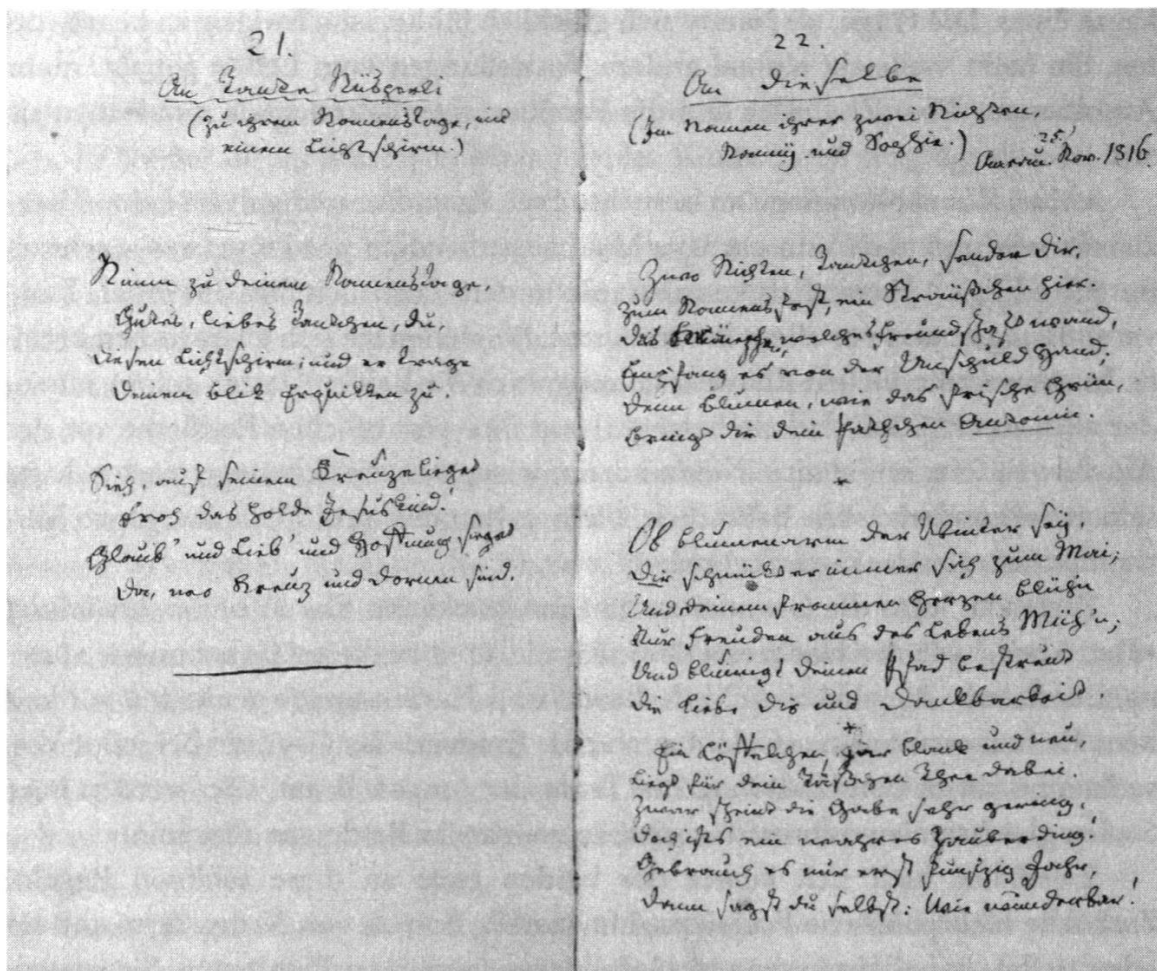 21.
An Tante Nüsperli
(zu ihrem Namenstage, mit
einem Lichtschirm.)
Nimm zu deinem Namenstage,
Gutes, liebes Tantchen, du,
diesen Lichtschirm; und er trage
deinem Blik Erquikken zu.
Sieh, auf seinem Kreuze lieget
froh das holde Jesuskind.
Glaub' und Lieb' und Hoffnung sieget
da, wo Kreuz und Dornen sind.
22.
An dieselbe
(Im Namen ihrer zwei Nichten,
Nanny und Sophie.)
Aarau. 25. Nov. 1816.
Zwo Nichten, Tantchen, senden dir,
zum Namensfest, ein Sträußchen hier.
das welches Freundschaft wand,
Empfang es von der Unschuld Hand;
denn Blumen, wie das frische Grün,
bringt dir dein Pathchen Antonin.
*
Ob blumenarm der Winter sey,
dir schmückt er immer sich zum Mai;
Und deinem frommen Herzen blühn
Nur Freuden aus des Lebens Müh'n;
Und blumigt deinen Pfad bestreut
die Liebe dir und Dankbarkeit
*
Ein Löffelchen, gar blank und neu,
liegt für dein Täßchen Thee dabei.
Zwar scheint die Gabe sehr gering,
doch ists ein wahres Zauberding.
Gebrauch es nur erst funfzig Jahr,
dann sagst du selbst: Wie wunderbar!